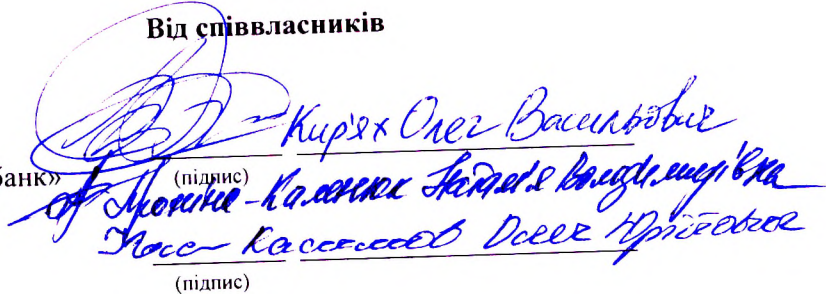 Від співвласників
Кир'ях Олег Васильович
банк» (підпис)
Наталія Володимирівна
Касимов Олег Юрійович
(підпис)